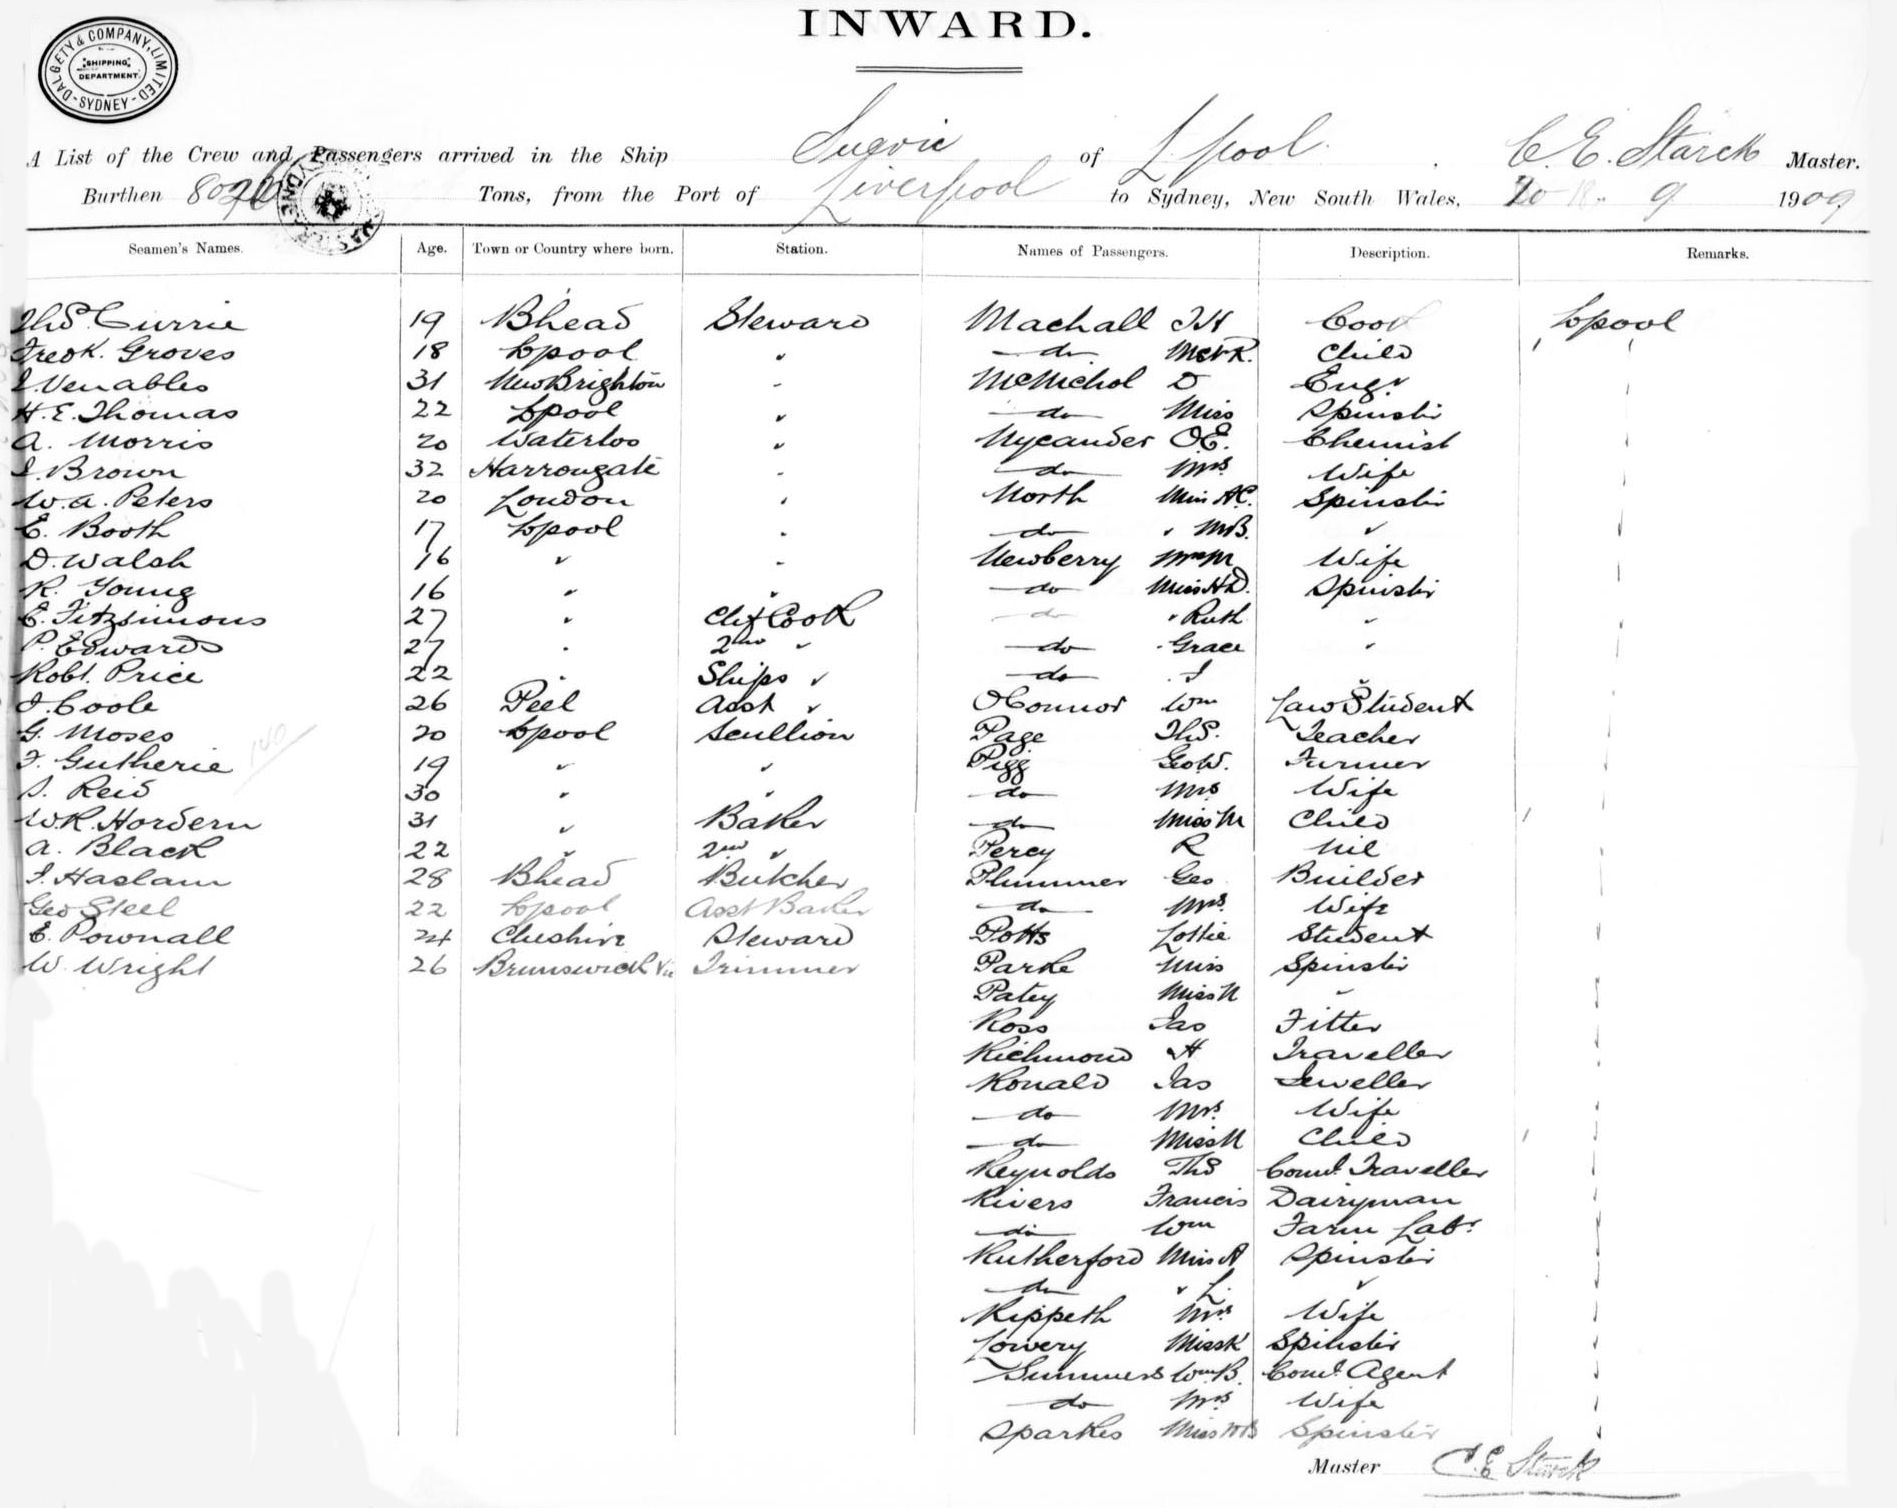 INWARD.
DALGETY & COMPANY, LIMITED
SHIPPING
DEPARTMENT.
SYDNEY
A List of the Crew and Passengers arrived in the Ship Suevic of L'pool. C. E. Starck Master.
Burthen Tons, from the Port of Liverpool to Sydney, New South Wales, 20 9 1909
Seamen's Names. Age. Town or Country where born. Station. Names of Passengers. Description. Remarks.
Thos. Currie 19 Bhead Steward Machall J H Cook Lpool
Fredk. Groves 18 Lpool " do Child "
J. Venables 31 New Brighton " McNichol D Engr "
H. E. Thomas 22 Lpool " do Miss Spinster "
A. Morris 20 Waterloo " Nycander O E. Chemist "
J. Brown 32 Harrongate " do Mrs Wife "
W. A. Peters 20 London " North Miss A C. Spinster "
E. Booth 17 Lpool " do " M B. " "
D. Walsh 16 " " Newberry Mrs M Wife "
R. Young 16 " " do Miss H D. Spinster "
E. Fitzsimons 27 " Chf Cook do " Ruth " "
P. Edwards 27 " 2nd " do " Grace " "
Robt. Price 22 " Ships " do " J " "
J. Coole 26 Peel Asst " OConnor Wm Law Student "
G. Moses 20 Lpool Scullion Page Thos. Teacher "
F. Gutherie 19 " " Pigg Geo W. Farmer "
S. Reid 30 " " do Mrs Wife "
W. R. Hordern 31 " Baker do Miss M Child "
A. Black 22 " 2nd " Percy R Nil "
J. Haslam 28 Bhead Butcher Plummer Geo Builder "
Geo Steel 22 Lpool Asst Baker do Mrs. Wife "
E. Pownall 24 Cheshire Steward Potts Lottie Student "
W. Wright 26 Brunswick Vic Trimmer Parke Miss Spinster "
Patey Miss N " "
Ross Jas Fitter "
Richmond H Traveller "
Ronald Jas Jeweller "
do Mrs Wife "
do Miss N Child "
Reynolds Thos Coml. Traveller "
Rivers Francis Dairyman "
do Wm Farm Labr "
Rutherford Miss A Spinster "
do " L. " "
Rippeth Mrs Wife "
Lowery Miss K Spinster "
Summers Wm B. Coml. Agent "
do Mrs Wife "
Sparkes Miss Spinster "
Master C. E. Starck